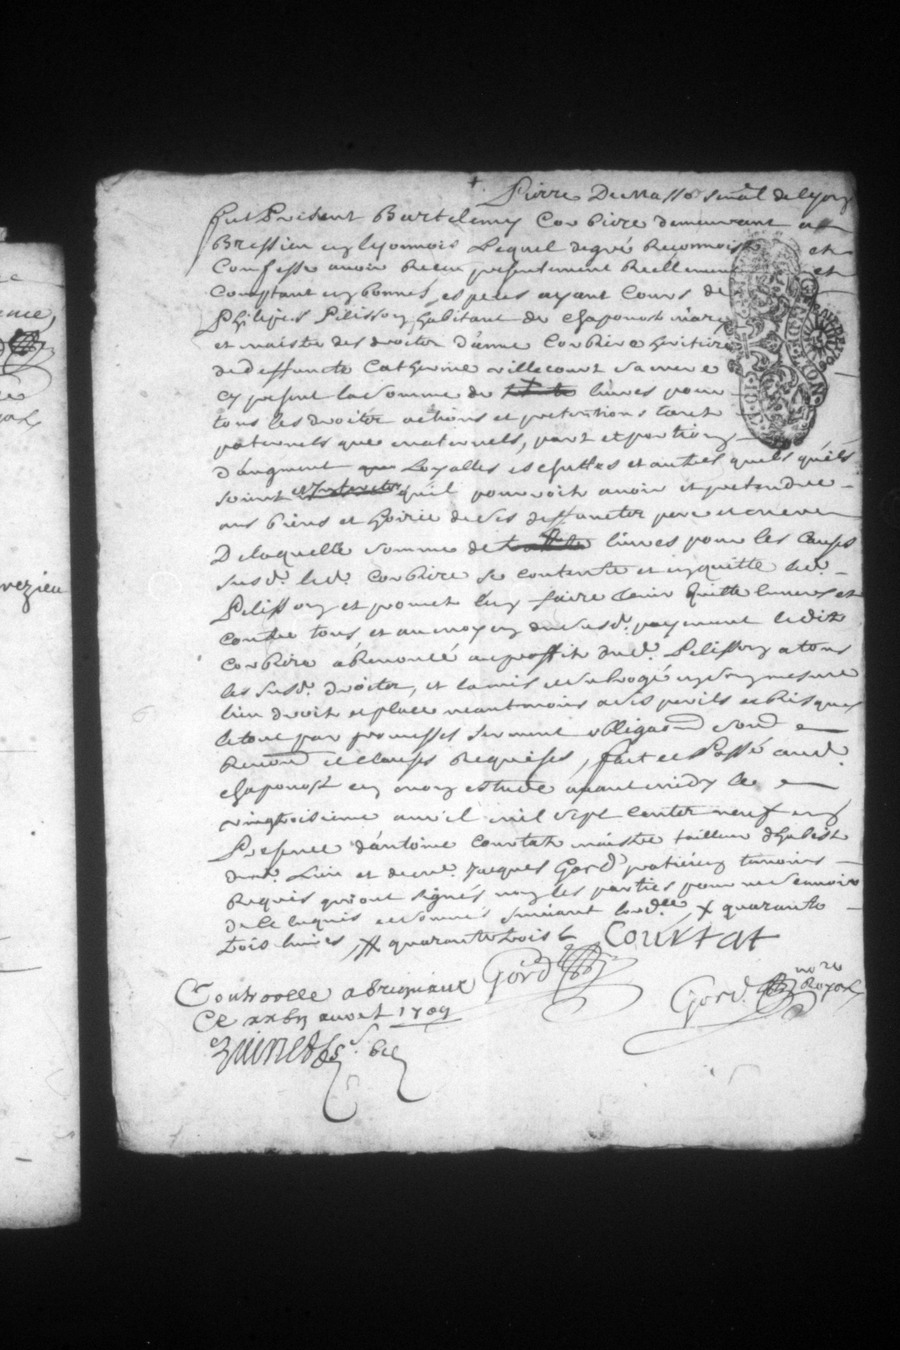 Pierre Dumas not. Sénal de lyon
fut Present Bartelemy Corbiere demeurant a
Bressieu en lyonnois Lequel de gré Reconnoist et
Confesse avoir Receu presentement Reellement et
Comptant en bonnes especes ayant Cours de
Philipes Pelisson habitant de Chaponost mary
et maistre des droits d'anne Corbiere heritiere
de deffuncte Catherine villecourt sa mere
Cy present la somme de livres pour
tous les droits actions et pretentions tant
paternels que maternels, part et portion
d'augment Loyalles escheuttes et autres quels quels
soient quil pourroit avoir et pretendre
aux biens et hoirie de ses deffuncts pere et mere
De laquelle somme de livres pour les causes
susd. led. Corbiere se contente et en quitte led.
Pelisson et promet luy faire tenir quitte envers et
contre tous et au moyen du susd. payement ledit
Corbiere a Renoncé au proffit dud. Pelisson a tous
les susd. droits, et la mis et subrogé en son mesme
lieu droit et place neantmoins a ses perils et Risques
le tout par promesses serment obligaon soub
Renon et clauses Requises, fait et Passé aud.
Chaponost en mon estude avant midy le
vingtroisieme avril mil sept cents neuf en
Presence d'antoine Courtat maistre tailleur d'habist
dud. Lieu et de me. Jacques Gord praticien temoins
Requis qui ont signés non les parties pour ne scavoir
de ce enquis et sommés suivant lord.ce X quarante
trois livres X quarante trois l.
Courtat
Gord
Gord. no.re Royal
Controolle a brignais
Ce xxbj avril 1709